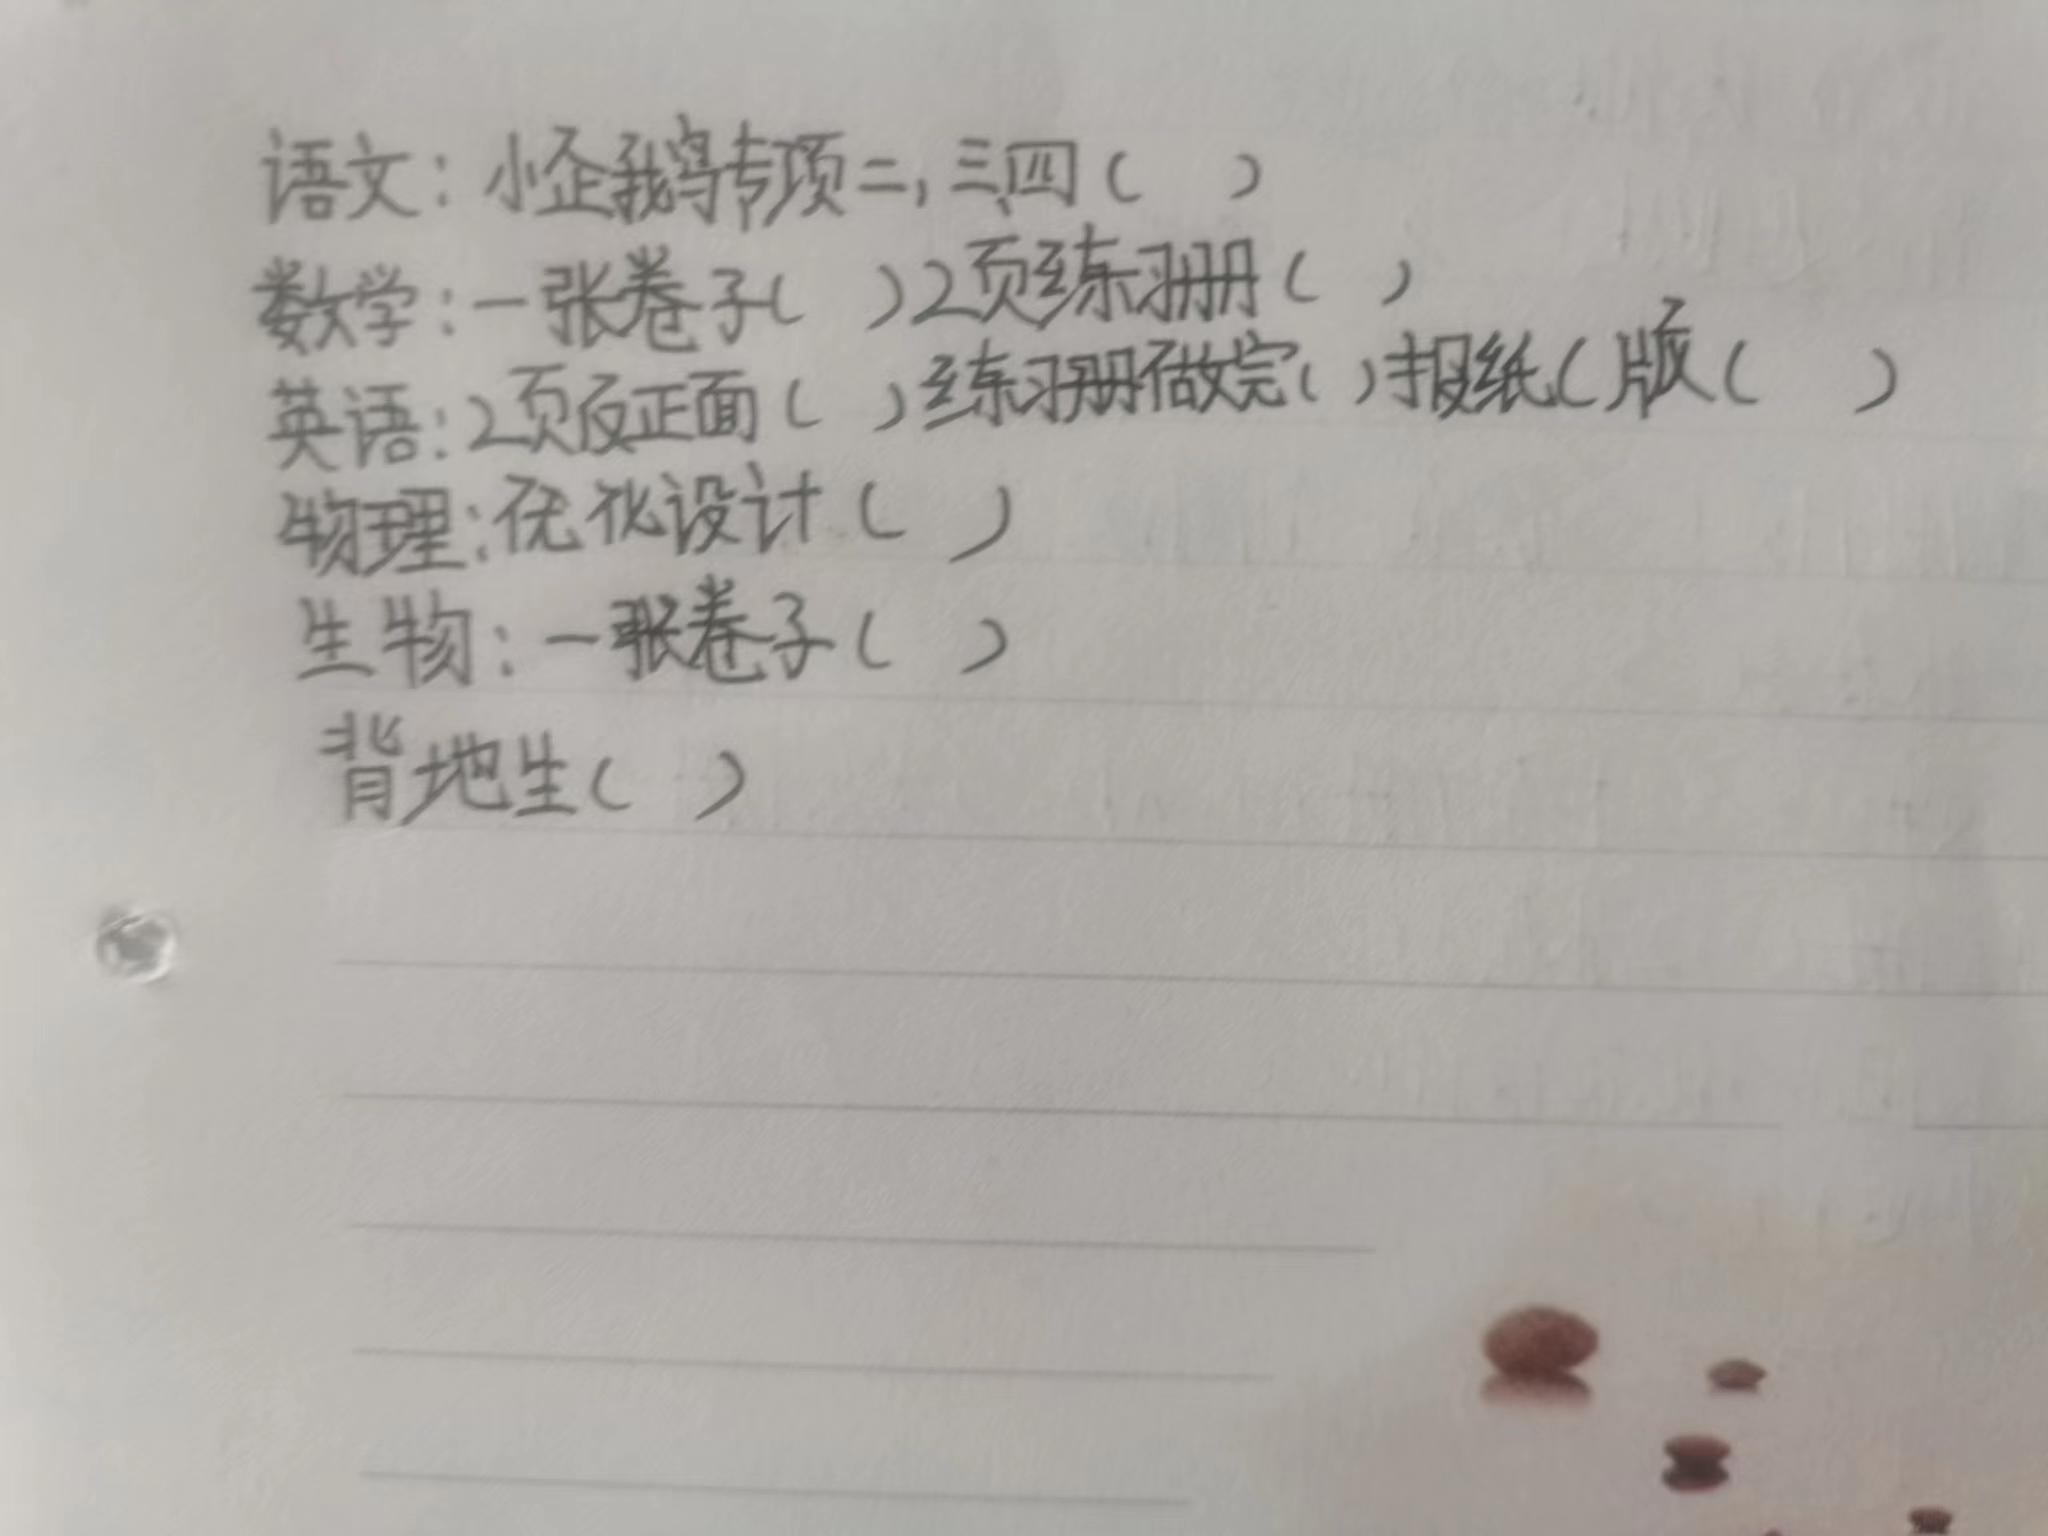 语文：小企鹅专项二，三、四（ ）
数学：一张卷子（ ）2页练习册（ ）
英语：2页反正面（ ）练习册做完（ ）报纸（版（ ）
物理：优化设计（ ）
生物：一张卷子（ ）
背地生（ ）